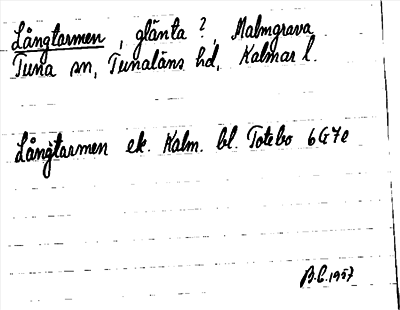 Långtarmen, glänta?, Malmgrava
Tuna sn, Tunaläns hd, Kalmar l.
Långtarmen ek. Kalm. bl. Totebo 6G7e
B.E. 1957